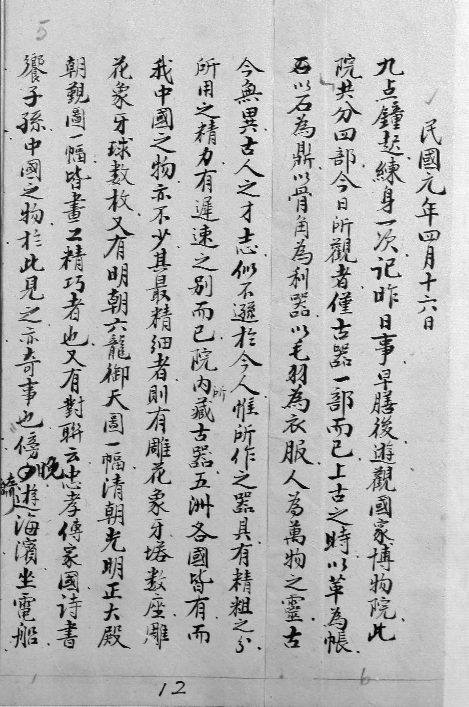 5
民國元年四月十六日
九点鐘起練身一次記昨日事早膳後遊觀國家博物院此
院共分四部今日所觀者僅古器一部而已上古之時以革為帳
石以石為鼎以骨角為利器以毛羽為衣服人為萬物之靈古
今無異古人之才志似不遜於今人惟所作之器具有精粗之分
所用之精力有遲速之別而已院內所藏古器五洲各國皆有而
我中國之物亦不少其最精細者則有雕花象牙塔数座雕
花象牙球数枚又有明朝六龍御天圖一幅清朝光明正大殿
朝覲圖一幅皆畫工精巧者也又有對聯云忠孝傳家國詩書
饗子孫中國之物於此見之亦奇事也傍晚遊海濱坐電船
12
6